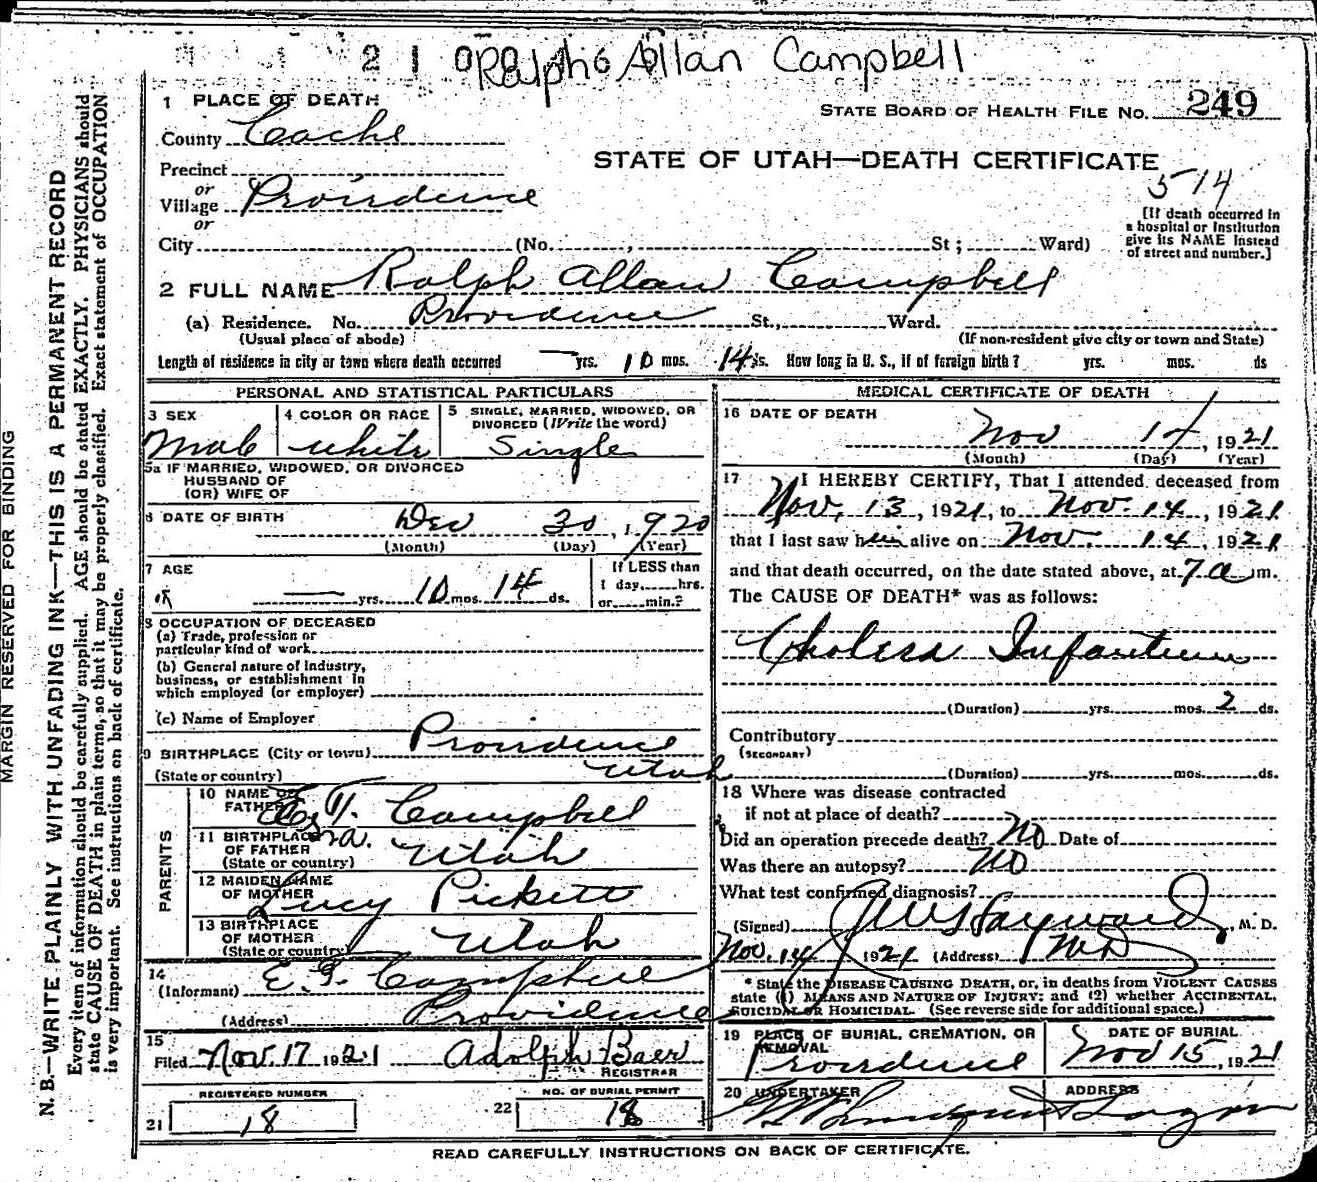 Ralph Allan Campbell
1 PLACE OF DEATH
STATE BOARD OF HEALTH FILE NO. 249
County Cache
STATE OF UTAH—DEATH CERTIFICATE
514
Precinct
or
Village Providence
or
City (No. , St ; Ward)
[If death occurred in
a hospital or institution
give its NAME instead
of street and number.]
2 FULL NAME Ralph Allan Campbell
(a) Residence. No. Providence St., Ward.
(Usual place of abode) (If non-resident give city or town and State)
Length of residence in city or town where death occurred — yrs. 10 mos. 14 ds. How long in U. S., if of foreign birth? yrs. mos. ds
PERSONAL AND STATISTICAL PARTICULARS
3 SEX Male
4 COLOR OR RACE white
5 SINGLE, MARRIED, WIDOWED, OR
DIVORCED (Write the word)
Single
5a IF MARRIED, WIDOWED, OR DIVORCED
HUSBAND OF
(OR) WIFE OF
6 DATE OF BIRTH Dec 30, 1920
(Month) (Day) (Year)
7 AGE
— yrs. 10 mos. 14 ds.
If LESS than
1 day hrs.
or min.?
8 OCCUPATION OF DECEASED
(a) Trade, profession or
particular kind of work
(b) General nature of industry,
business, or establishment in
which employed (or employer)
(c) Name of Employer
9 BIRTHPLACE (City or town) Providence
(State or country) Utah
PARENTS
10 NAME OF
FATHER Campbell
11 BIRTHPLACE
OF FATHER
(State or country) Utah
12 MAIDEN NAME
OF MOTHER Lucy Pickett
13 BIRTHPLACE
OF MOTHER
(State or country) Utah
14
(Informant) E. T. Campbell
(Address) Providence
15
Filed Nov. 17 1921 Adolph Baer
REGISTRAR
REGISTERED NUMBER
21 18
NO. OF BURIAL PERMIT
22 18
MEDICAL CERTIFICATE OF DEATH
16 DATE OF DEATH
Nov 14, 1921
(Month) (Day) (Year)
17 I HEREBY CERTIFY, That I attended deceased from
Nov. 13, 1921, to Nov. 14, 1921
that I last saw him alive on Nov. 14, 1921
and that death occurred, on the date stated above, at 7 a m.
The CAUSE OF DEATH* was as follows:
Cholera Infantum
(Duration) yrs. mos. 2 ds.
Contributory
(SECONDARY)
(Duration) yrs. mos. ds.
18 Where was disease contracted
if not at place of death?
Did an operation precede death? No Date of
Was there an autopsy? No
What test confirmed diagnosis?
(Signed) Hayward, M. D.
Nov. 14 1921 (Address)
* State the DISEASE CAUSING DEATH, or, in deaths from VIOLENT CAUSES
state (1) MEANS AND NATURE OF INJURY; and (2) whether ACCIDENTAL,
SUICIDAL OR HOMICIDAL. (See reverse side for additional space.)
19 PLACE OF BURIAL, CREMATION, OR
REMOVAL
Providence
DATE OF BURIAL
Nov 15, 1921
20 UNDERTAKER
ADDRESS
Logan
READ CAREFULLY INSTRUCTIONS ON BACK OF CERTIFICATE.
MARGIN RESERVED FOR BINDING
N. B.—WRITE PLAINLY WITH UNFADING INK—THIS IS A PERMANENT RECORD
Every item of information should be carefully supplied. AGE should be stated EXACTLY. PHYSICIANS should
state CAUSE OF DEATH in plain terms, so that it may be properly classified. Exact statement of OCCUPATION
is very important. See instructions on back of certificate.